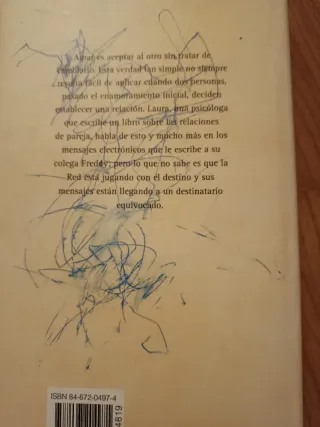 Amar es aceptar al otro sin tratar de
cambiarlo. Esta verdad tan simple no siempre
resulta fácil de aplicar cuando dos personas,
pasado el enamoramiento inicial, deciden
establecer una relación. Laura, una psicóloga
que escribe un libro sobre las relaciones
de pareja, habla de esto y mucho más en los
mensajes electrónicos que le escribe a su
colega Freddy; pero lo que no sabe es que la
Red está jugando con el destino y sus
mensajes están llegando a un destinatario
equivocado.
ISBN 84-672-0497-4
4819